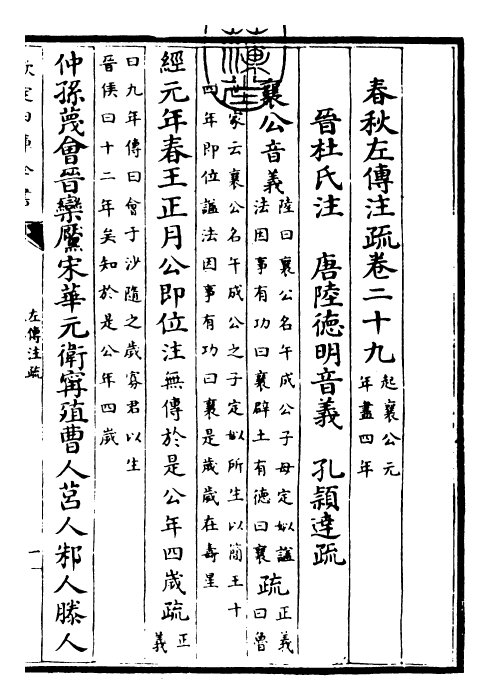 春秋左傳注疏卷二十九
起襄公元
年盡四年
晉杜氏注　唐陸德明音義　孔穎達疏
襄公音義
陸曰襄公名午成公子母定姒諡
法因事有功曰襄辟土有德曰襄
疏
正義
曰魯
世家云襄公名午成公之子定姒所生以簡王十
四年即位諡法因事有功曰襄是歲歲在壽星
經元年春王正月公即位注無傳於是公年四歲疏
正
義
曰九年傳曰會于沙隨之歲寡君以生
晉侯曰十二年矣知於是公年四歲
仲孫蔑會晉欒黶宋華元衛甯殖曹人莒人邾人滕人
左傳注疏
一